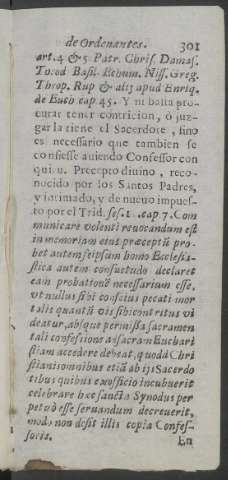 de Ordenantes. 301
art. 4 & 5 Patr. Chris. Damas.
Teod Basil. Ethum. Niss. Greg.
Throp. Rup & alij apud Enriq.
de Euch cap. 45. Y ni basta pro-
curar tener contricion, ò juz-
gar la tiene el Sacerdote, sino
es necessario que tambien se
confiesse auiendo Confessor con
quien. Precepto diuino, reco-
nocido por los Santos Padres,
y intimado, y de nueuo impues-
to por el Trid. ses. 1 . cap 7. Com
municare volenti reuocandum est
in memoriam eius præceptũ pro-
bet autem seipsum homo Ecclesia-
stica autem consuetudo declarat
eam probationẽ necessariam esse,
vt nullus sibi conscius pecati mor
talis quantũ vis sibi contritus vi
deatur, absque permissa sacramen
tali confessione ad sacram Euchari
stiam accedere debeat, quod à Chri
stianis omnibus etiã ab ijs Sacerdo
tibus quibus ex officio incubuerit
celebrare hæc sancta Synodus per
petuò esse seruandum decreuerit,
modo non desit illis copia Confes-
soris.
En